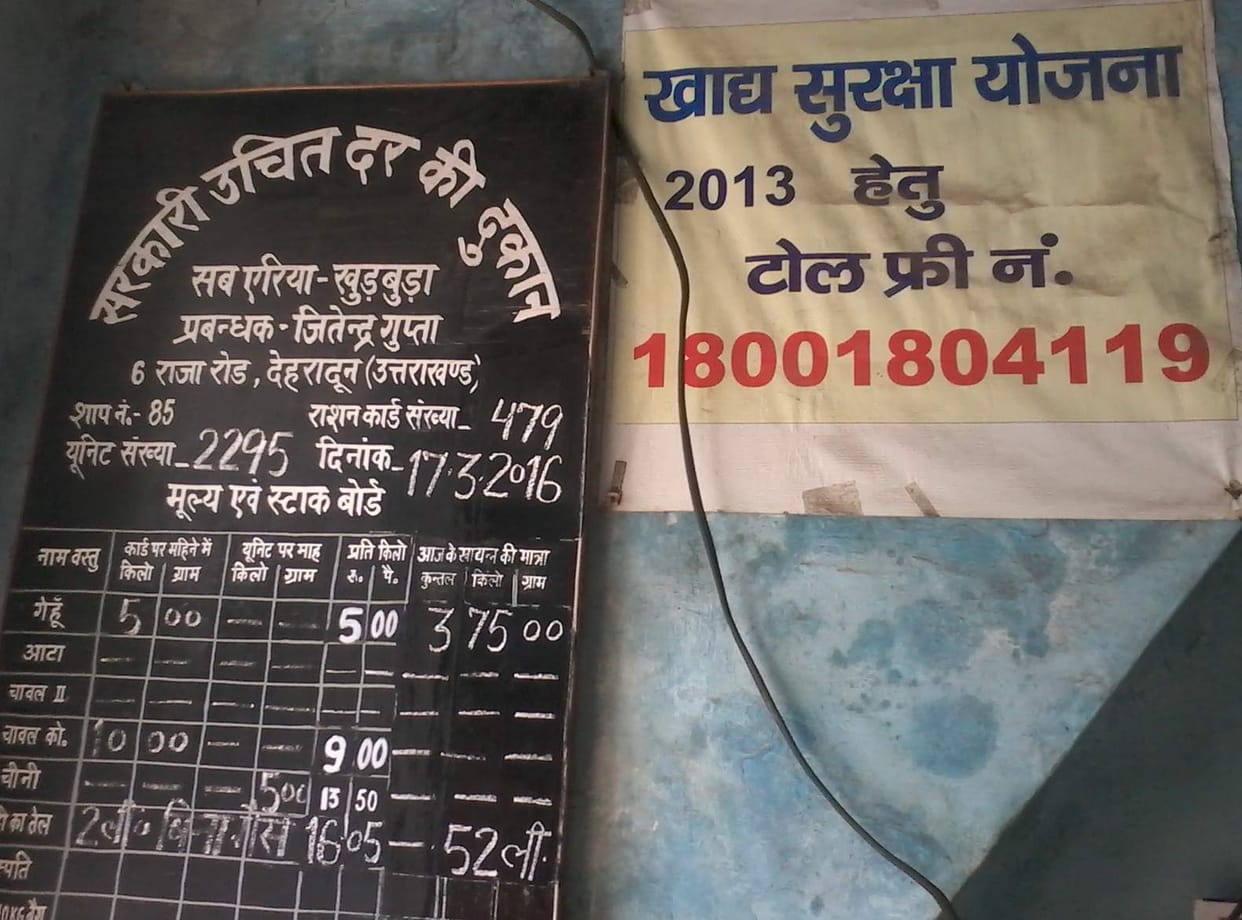 सरकारी उचित दर की दुकान
सब एरिया - खुड़बुड़ा
प्रबन्धक - जितेन्द्र गुप्ता
6 राजा रोड, देहरादून (उत्तराखण्ड)
शाप नं.- 85 राशन कार्ड संख्या_ 479
यूनिट संख्या_ 2295 दिनांक_ 17.3.2016
मूल्य एवं स्टाक बोर्ड
नाम वस्तु कार्ड पर महिने में यूनिट पर माह प्रति किलो आज के की मात्रा
किलो ग्राम किलो ग्राम रु. पै. कुन्तल किलो ग्राम
गेहूँ 5 00 — — 5 00 3 75 00
आटा — — — — — — — — —
चावल II — — — — — — — — —
चावल को. 10 00 — — 9 00 — — —
चीनी — — — 500 13 50 — — —
का तेल 2ली० बिना गैस 16.05 — 52 ली.
स्पति
खाद्य सुरक्षा योजना
2013 हेतु
टोल फ्री नं.
18001804119